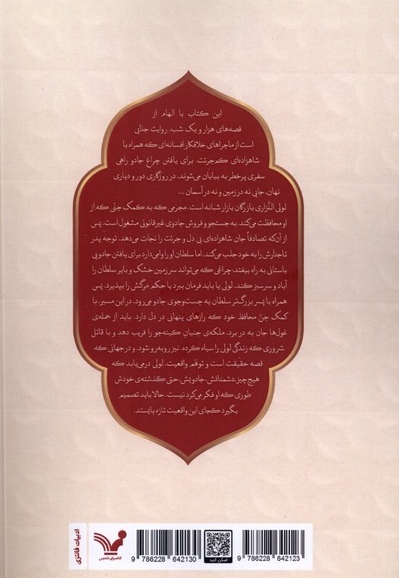 این کتاب با الهام از
قصه‌های هزار و یک شب، روایت جذابی
است از ماجراهای خلافکار افسانه‌ای که همراه با
شاهزاده‌ای کم‌جرئت، برای یافتن چراغ جادو راهی
سفری پرخطر به بیابان می‌شوند. در روزگاری دور و دیاری
نهان، جایی نه در زمین و نه در آسمان ...
لولی النّزاری بازرگان بازار شبانه است، مجرمی که به کمک جنّی که از
او محافظت می‌کند، به جست‌وجو و فروش جادوی غیرقانونی مشغول است. پس
از آن‌که تصادفاً جان شاهزاده‌ای بی دل و جرئت را نجات می‌دهد، توجه پدر
تاجدارش را به خود جلب می‌کند. اما سلطان او را وامی‌دارد برای یافتن جادویی
باستانی به راه بیفتد: چراغی که می‌تواند سرزمین خشک و بایر سلطان را
آباد و سرسبز کند. لولی یا باید فرمان ببرد یا حکم مرگش را بپذیرد. پس
همراه با پسر بزرگ‌تر سلطان به جست‌وجوی جادو می‌رود. در این مسیر، با
کمک جنّ محافظ خود که رازهای پنهانی در دل دارد، باید از حمله‌ی
غول‌ها جان به در برد، ملکه‌ی جنیان کینه‌جو را فریب دهد و با قاتل
شروری که زندگی لولی را سیاه کرده، نیز روبه‌رو شود. و در جهانی که
قصه حقیقت است و توهّم واقعیت، لولی درمی‌یابد که
هیچ چیز، دشمنانش، جادویش، حتی گذشته‌ی خودش
طوری که او فکر می‌کرد نیست. حالا باید تصمیم
بگیرد کجای این واقعیت تازه بایستد.
ادبیات فانتزی
کتابسرای تندیس
9 786228 642130
اسکن کنید
9 786228 642123